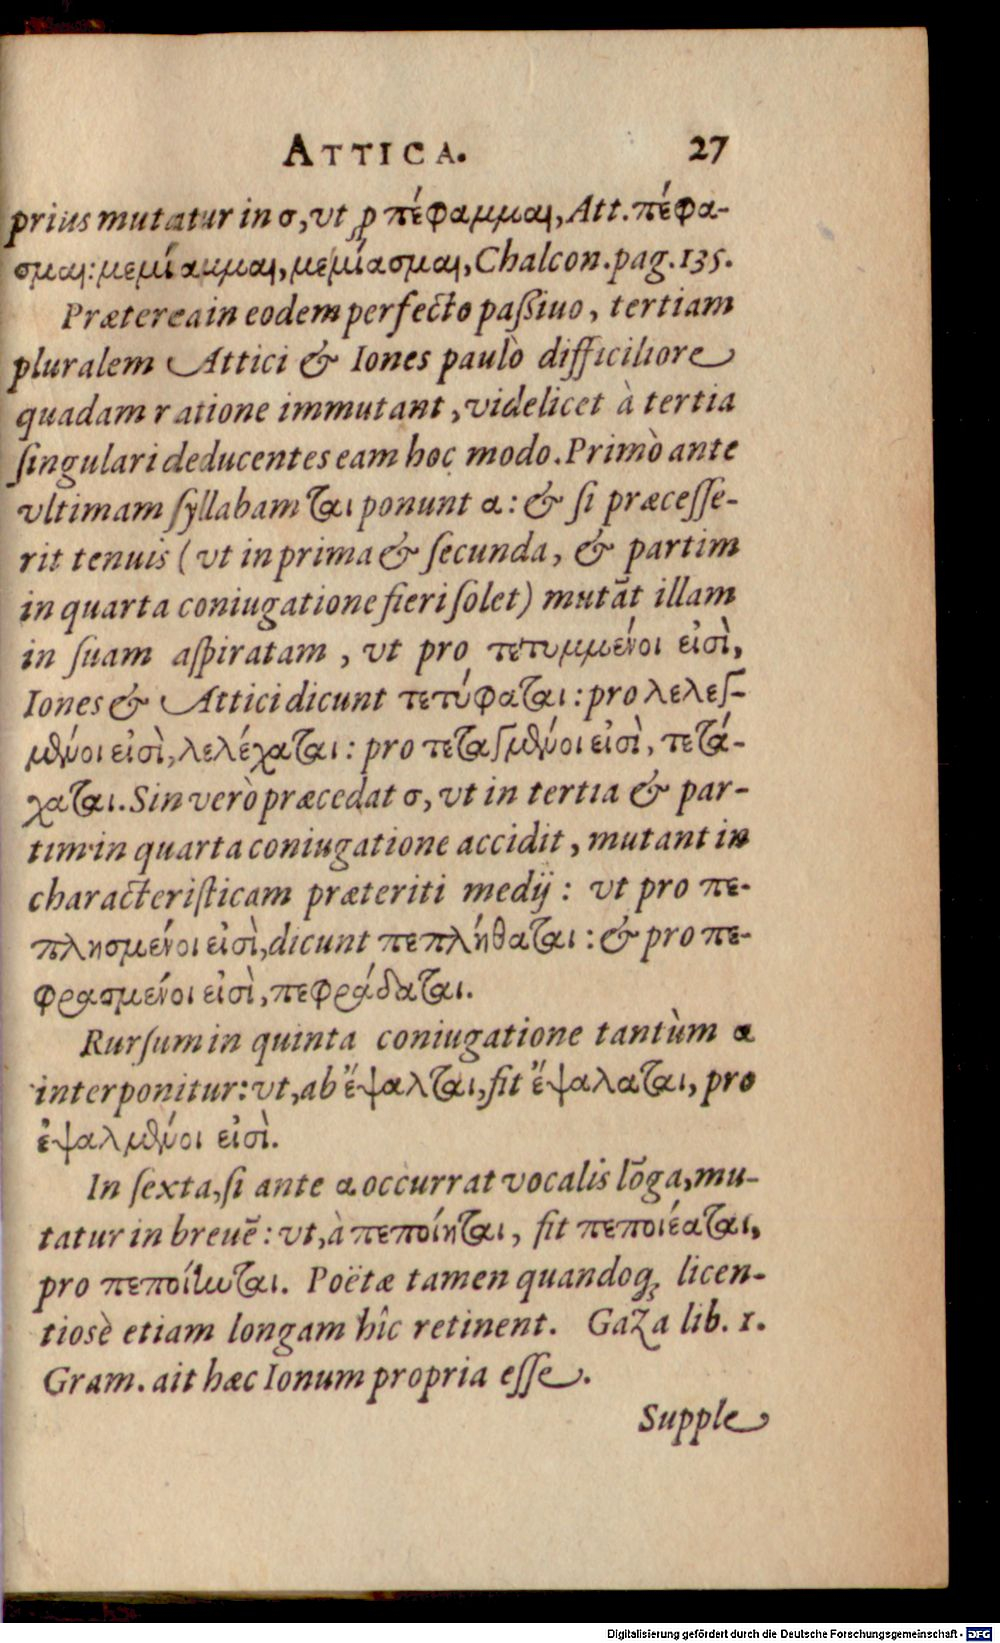 ATTICA. 27
prius mutatur in σ, vt ꝓ πέφαμμαι, Att. πέφα-
σμαι: μεμίαμμαι, μεμίασμαι, Chalcon. pag. 135.
Prætereain eodem perfecto paſſiuo, tertiam
pluralem Attici & Iones paulò difficiliore
quadam ratione immutant, videlicet à tertia
ſingulari deducentes eam hoc modo. Primò ante
vltimam ſyllabam ται ponunt α: & ſi præceſſe-
rit tenuis (vt in prima & ſecunda, & partim
in quarta coniugatione fieri ſolet) mutāt illam
in ſuam aſpiratam, vt pro τετυμμένοι εἰσὶ,
Iones & Attici dicunt τετύφαται: pro λελεγ-
μένοι εἰσὶ, λελέχαται: pro τεταγμένοι εἰσὶ, τετά-
χαται. Sin verò præcedat σ, vt in tertia & par-
tim in quarta coniugatione accidit, mutant in
characteriſticam præteriti medij: vt pro πε-
πλησμένοι εἰσὶ, dicunt πεπλήθαται: & pro πε-
φρασμένοι εἰσὶ, πεφράδαται.
Rurſum in quinta coniugatione tantùm α
interponitur: vt, ab ἔψαλται, fit ἐψάλαται, pro
ἐψαλμένοι εἰσὶ.
In ſexta, ſi ante α occurrat vocalis lōga, mu-
tatur in breuē: vt, à πεποίηται, fit πεποιέαται,
pro πεποίηνται. Poëtæ tamen quandoq; licen-
tiosè etiam longam hîc retinent. Gaza lib. 1.
Gram. ait hæc Ionum propria eſſe.
Supple
Digitalisierung gefördert durch die Deutsche Forschungsgemeinschaft - DFG